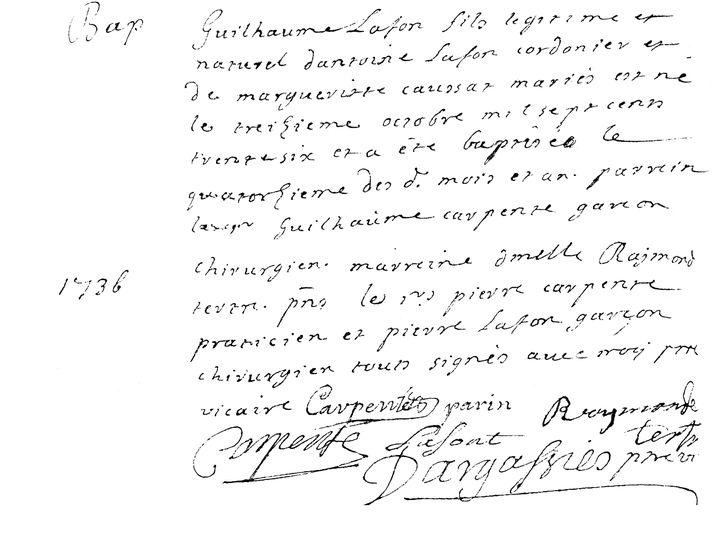 Bap Guilhaume Lafon fils legitime et
naturel dantoine Lafon cordonier et
de margueritte caussat mariés est né
le treizieme octobre mil sept cents
trente six et a ète baptiséé le
quatorzieme des d. mois et an. parrein
Guilhaùme carpente garcon
chirurgien. marreine dmelle Raymond
1736
teren. pns le srs pierre carpente
praticien et pierre Lafon garçon
chirurgien tous signés avec moy ptre
vicaire Carpentes parin Raymonde
Carpente Lafont terts
Dargassies ptre vi